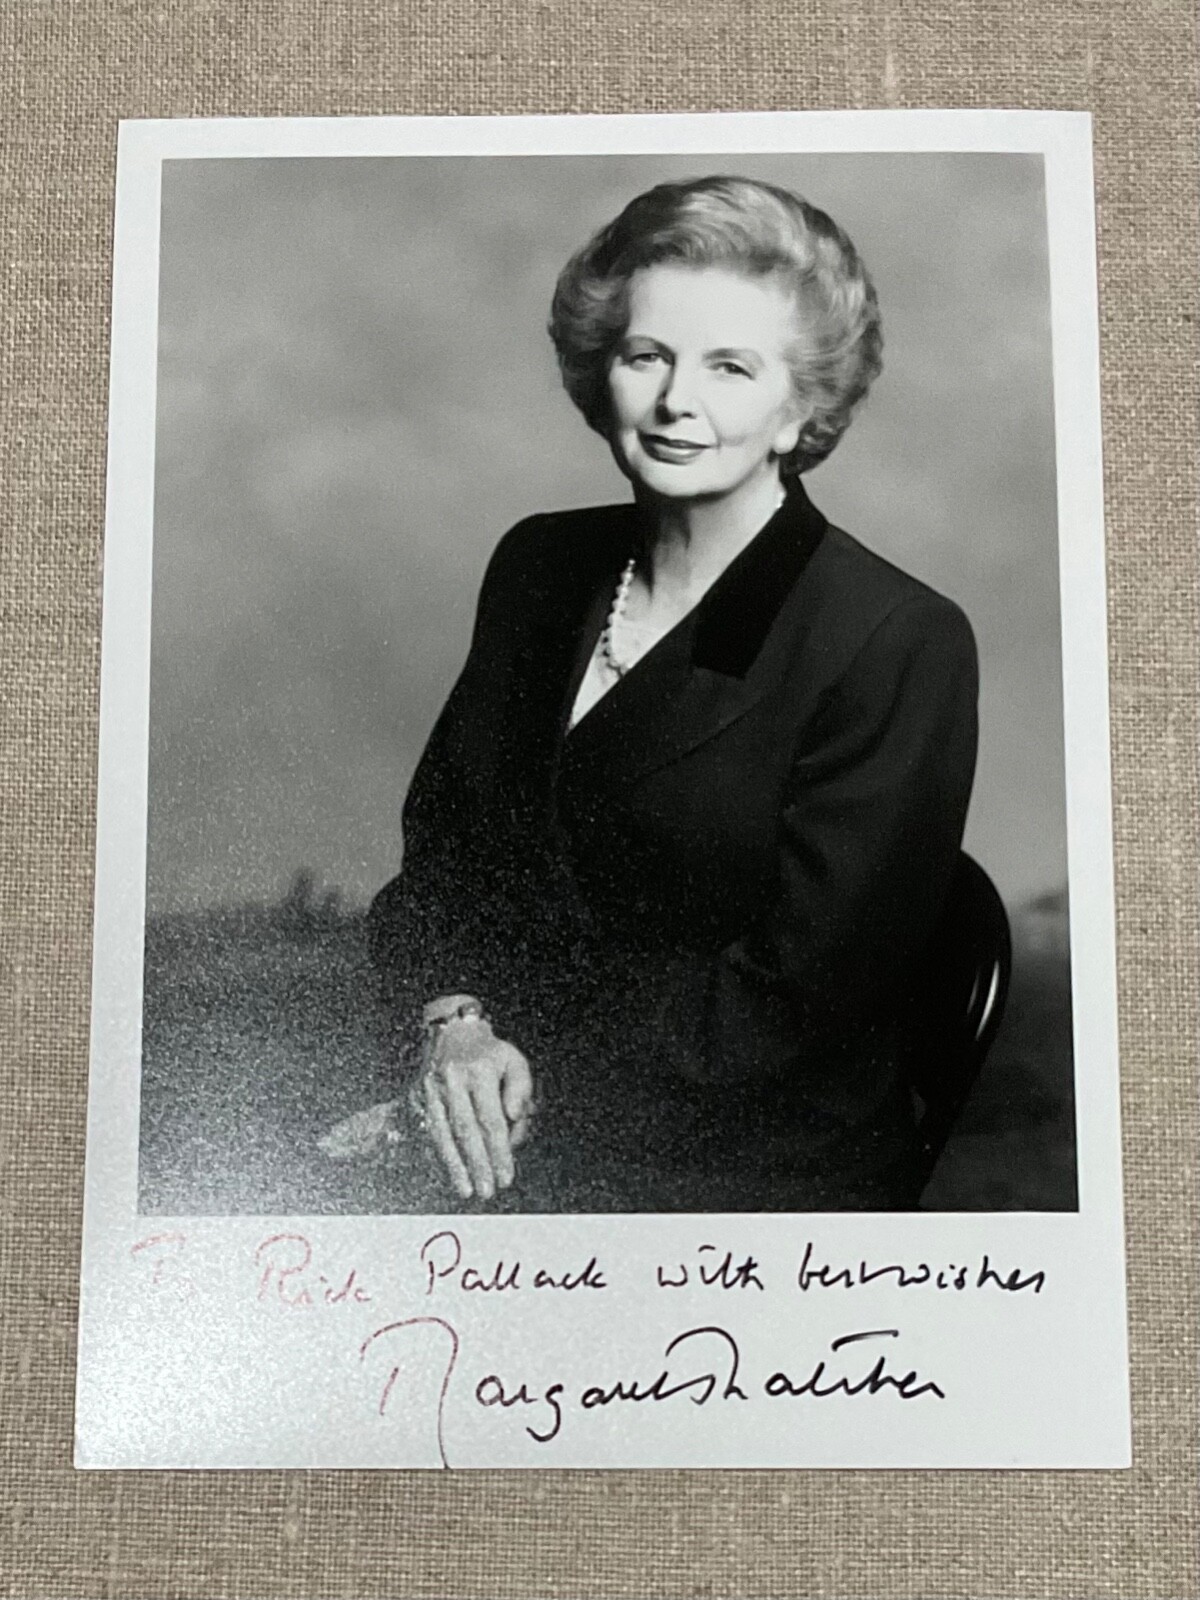 To Rick Pallack with best wishes
Margaret Thatcher